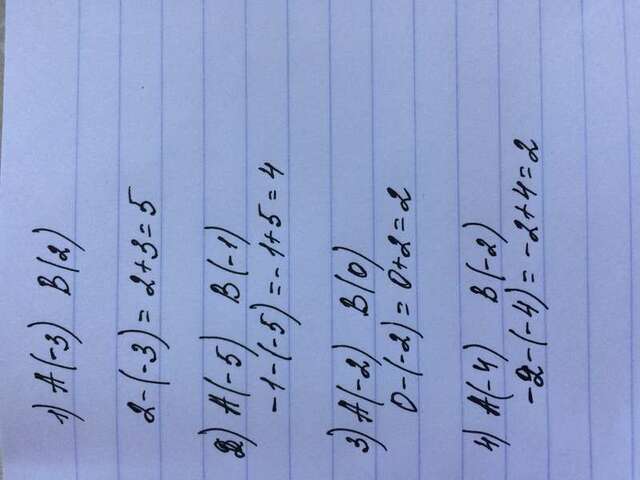 1) A(-3) B(2)
2-(-3) = 2+3=5
2) A(-5) B(-1)
-1-(-5) = -1+5=4
3) A(-2) B(0)
0-(-2) = 0+2=2
4) A(-4) B(-2)
-2-(-4) = -2+4=2